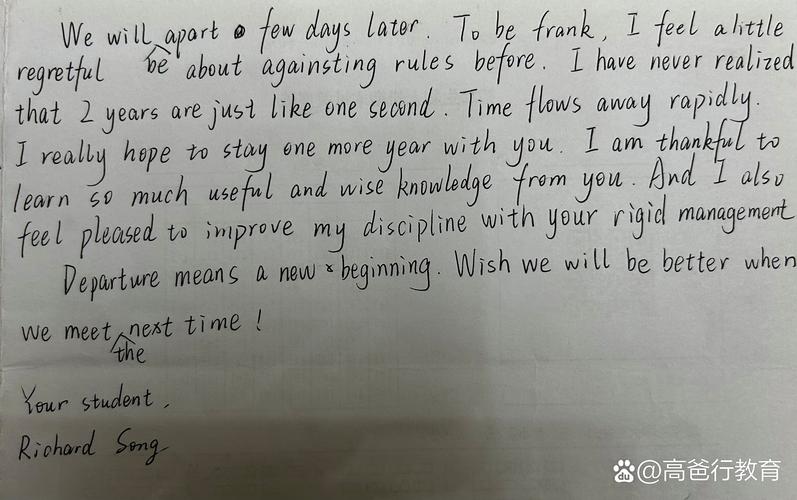 We will be apart a few days later. To be frank, I feel a little
regretful about againsting rules before. I have never realized
that 2 years are just like one second. Time flows away rapidly.
I really hope to stay one more year with you. I am thankful to
learn so much useful and wise knowledge from you. And I also
feel pleased to improve my discipline with your rigid management
Departure means a new beginning. Wish we will be better when
we meet the next time!
Your student,
Richard Song
du @高爸行教育